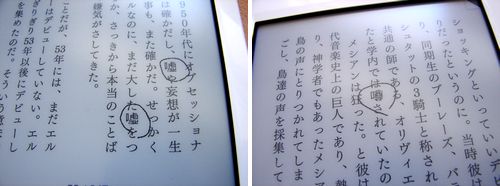 950年代にオブセッショナ
は確かだし、嘘や妄想が一生
事も、また確かだ。せっかく
ルなのに、まだ大した嘘をつ
か、さっきから本当のことば
嫌気がさしてきた。
ことだが、53年には、まだエル
ーはデビューしていない。エル
ぎりぎり53年以後にデビューし
を集めたのだ。そういう意味
ショッキングといっていいデ
りだったというのに。当時彼は
り、同期生のブーレーズ、バ
シュタットの3騎士と称され
共通の師である、オリヴィエ
たと学内では噂されていたの
メシアンは狂った。と彼は
代音楽史上の巨人であり、熱
り、神学者でもあったメシア
鳥の声にとりつかれてしま
ごし、鳥達の声を採集して